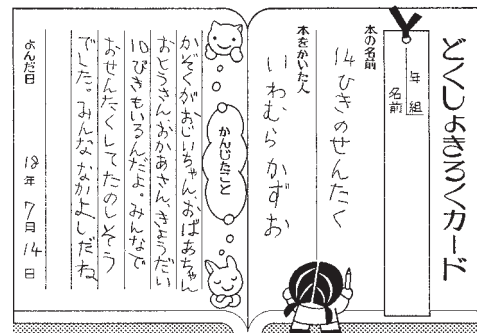 どくしょきろくカード
年 組
名前
本の名前
14ひきのせんたく
本をかいた人
いわむら かずお
かんじたこと
かぞくがおじいちゃん、おばあちゃん
おとうさん、おかあさん、きょうだい
10ぴきもいるんだよ。みんなで
おせんたくしてたのしそう
でした。みんななかよしだね
よんだ日
18年 7月 14日